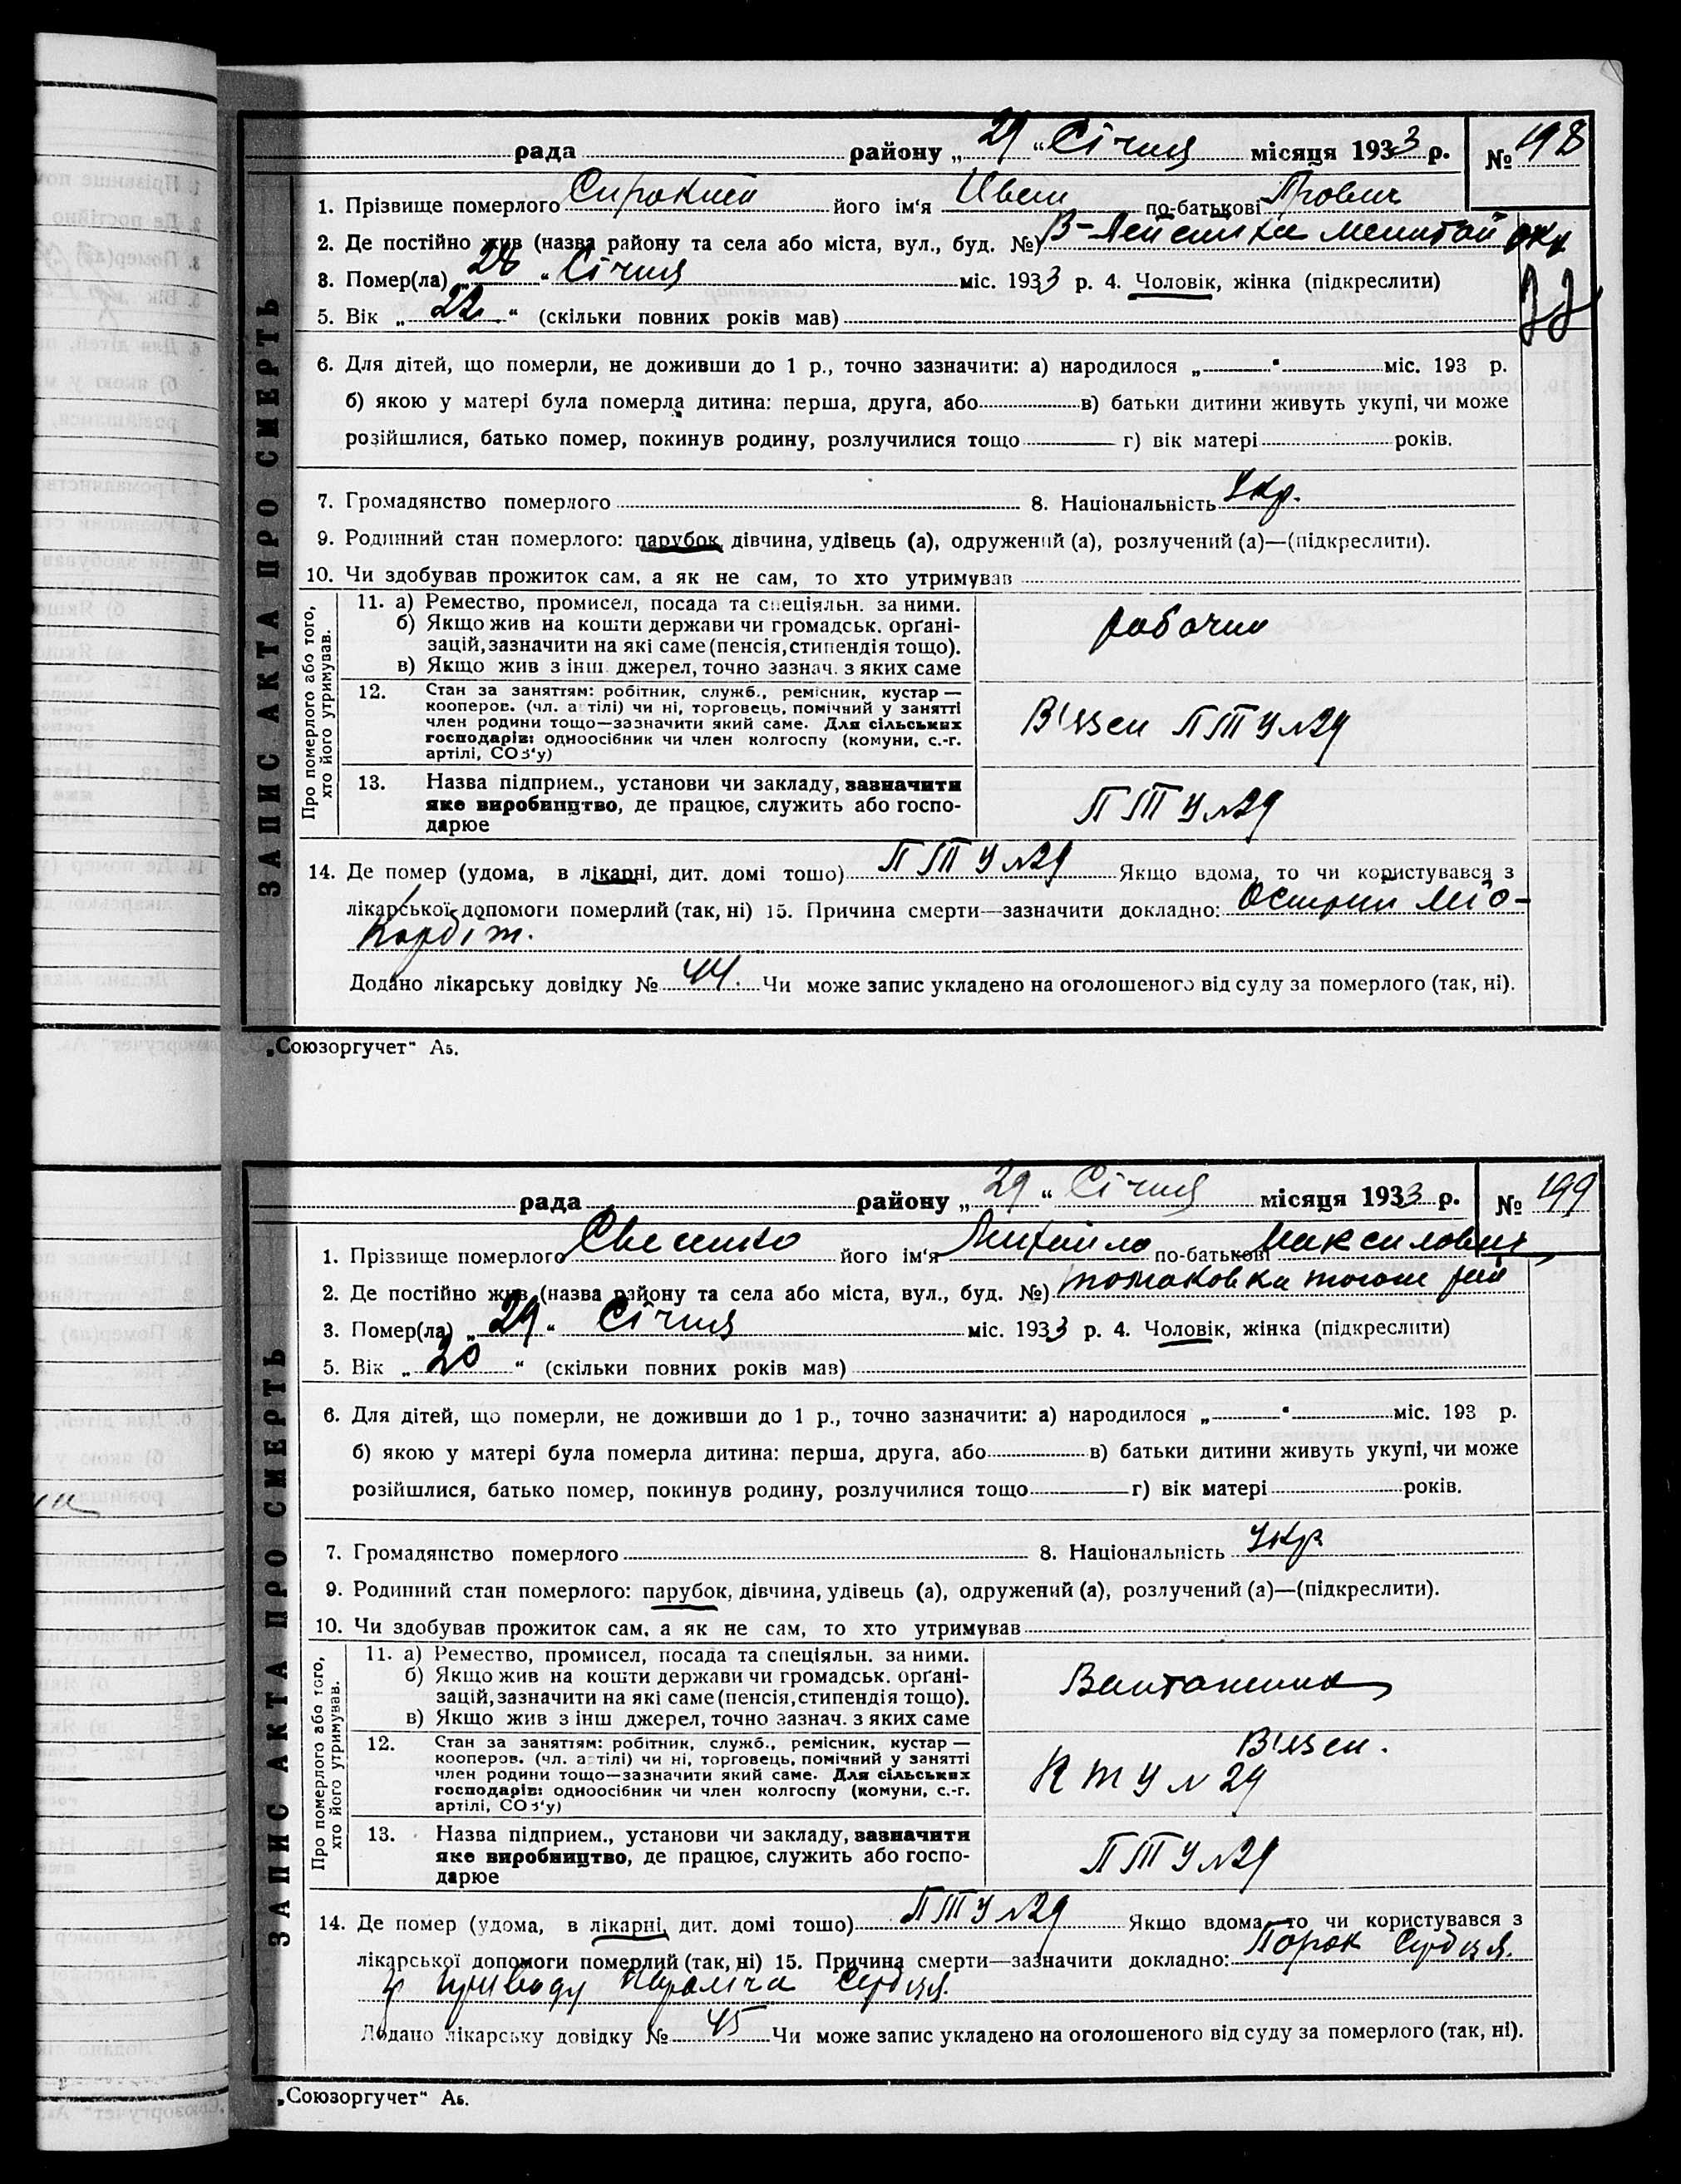 рада району „29“ Січня місяця 1933 р. № 198
1. Прізвище померлого його ім'я Иван по-батькові
2. Де постійно жив (назва району та села або міста, вул., буд. №)
3. Помер(ла) „28“ Січня міс. 1933 р. 4. Чоловік, жінка (підкреслити)
5. Вік „22“ (скільки повних років мав)
6. Для дітей, що померли, не доживши до 1 р., точно зазначити: а) народилося „ “ міс. 193 р.
б) якою у матері була померла дитина: перша, друга, або в) батьки дитини живуть укупі, чи може
розійшлися, батько помер, покинув родину, розлучилися тощо г) вік матері років.
7. Громадянство померлого 8. Національність Укр.
9. Родинний стан померлого: парубок, дівчина, удівець (а), одружений (а), розлучений (а)—(підкреслити).
10. Чи здобував прожиток сам, а як не сам, то хто утримував
ЗАПИС АКТА ПРО СМЕРТЬ
Про померлого або того,
хто його утримував.
11. а) Ремество, промисел, посада та спеціяльн. за ними.
б) Якщо жив на кошти держави чи громадськ. органі-
зацій, зазначити на які саме (пенсія, стипендія тощо).
в) Якщо жив з інш. джерел, точно зазнач. з яких саме
рабочий
12. Стан за заняттям: робітник, служб., ремісник, кустар —
кооперов. (чл. артілі) чи ні, торговець, помічний у занятті
член родини тощо—зазначити який саме. Для сільських
господарів: одноосібник чи член колгоспу (комуни, с.-г.
артілі, СОЗ'у)
В'язен ПТУ №29
13. Назва підприєм., установи чи закладу, зазначити
яке виробництво, де працює, служить або госпо-
дарює
ПТУ №29
14. Де помер (удома, в лікарні, дит. домі тошо) ПТУ №29 Якщо вдома, то чи користувався з
лікарської допомоги померлий (так, ні) 15. Причина смерти—зазначити докладно: Острий міо-
кардіт.
Додано лікарську довідку № 44. Чи може запис укладено на оголошеного від суду за померлого (так, ні).
„Союзоргучет“ А5.
рада району „29“ Січня місяця 1933 р. № 199
1. Прізвище померлого його ім'я Михайло по-батькові Максимович
2. Де постійно жив (назва району та села або міста, вул., буд. №) Томаковка
3. Помер(ла) „29“ Січня міс. 1933 р. 4. Чоловік, жінка (підкреслити)
5. Вік „20“ (скільки повних років мав)
6. Для дітей, що померли, не доживши до 1 р., точно зазначити: а) народилося „ “ міс. 193 р.
б) якою у матері була померла дитина: перша, друга, або в) батьки дитини живуть укупі, чи може
розійшлися, батько помер, покинув родину, розлучилися тощо г) вік матері років.
7. Громадянство померлого 8. Національність Укр
9. Родинний стан померлого: парубок, дівчина, удівець (а), одружений (а), розлучений (а)—(підкреслити).
10. Чи здобував прожиток сам, а як не сам, то хто утримував
ЗАПИС АКТА ПРО СМЕРТЬ
Про померлого або того,
хто його утримував.
11. а) Ремество, промисел, посада та спеціяльн. за ними.
б) Якщо жив на кошти держави чи громадськ. органі-
зацій, зазначити на які саме (пенсія, стипендія тощо).
в) Якщо жив з інш джерел, точно зазнач. з яких саме
12. Стан за заняттям: робітник, служб., ремісник, кустар —
кооперов. (чл. артілі) чи ні, торговець, помічний у занятті
член родини тощо—зазначити який саме. Для сільських
господарів: одноосібник чи член колгоспу (комуни, с.-г.
артілі, СОЗ'у)
В'язен.
ПТУ №29
13. Назва підприєм., установи чи закладу, зазначити
яке виробництво, де працює, служить або госпо-
дарює
ПТУ №29
14. Де помер (удома, в лікарні, дит. домі тошо) ПТУ №29 Якщо вдома, то чи користувався з
лікарської допомоги померлий (так, ні) 15. Причина смерти—зазначити докладно: Порок Сердця.
приводу Параліча Сердця.
Додано лікарську довідку № 45 Чи може запис укладено на оголошеного від суду за померлого (так, ні).
„Союзоргучет“ А5.